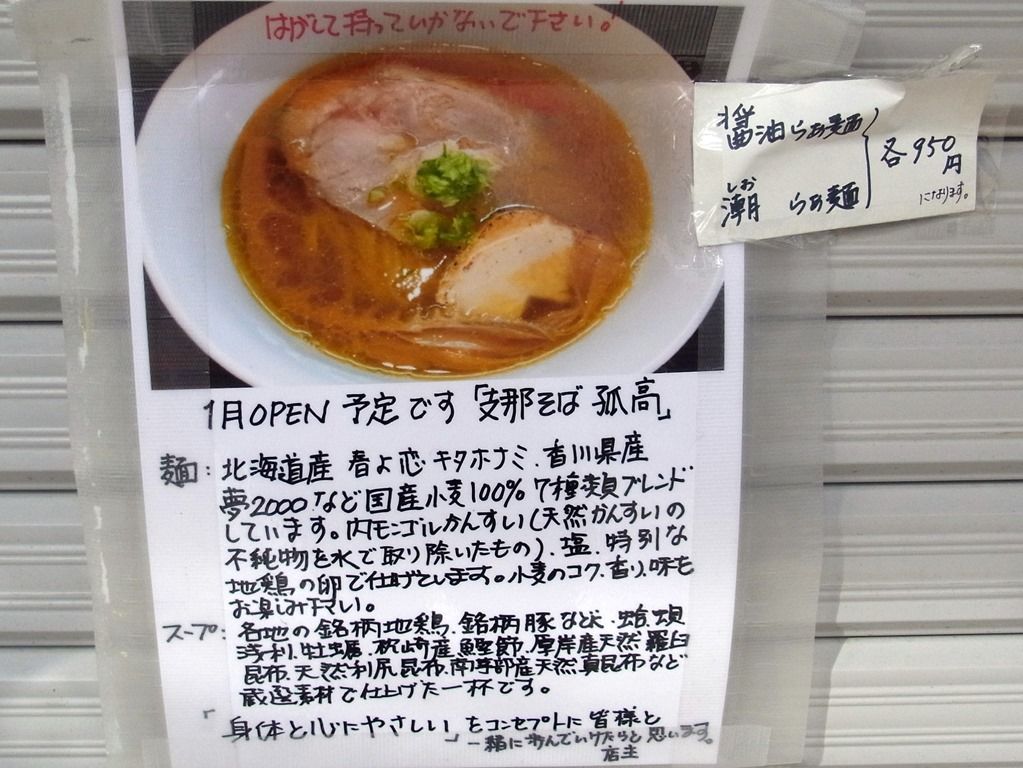 はがして持っていかないで下さい!
醤油らぁ麺
しお
潮 らぁ麺
各950円
になります。
1月OPEN 予定です「支那そば 孤高」
麺: 北海道産 春よ恋 キタホナミ、香川県産
夢2000など国産小麦100% 7種類ブレンド
しています。内モンゴルかんすい(天然かんすいの
不純物を水で取り除いたもの)、塩、特別な
地鶏の卵で仕上げています。小麦のコク、香り、味を
お楽しみ下さい。
スープ: 各地の銘柄地鶏、銘柄豚など、蛤、蜆
浅利、牡蠣、枕崎産鰹節、厚岸産天然羅臼
昆布、天然利尻昆布、南茅部産天然真昆布など
厳選素材で仕上げた一杯です。
「身体と心にやさしい」をコンセプトに皆様と
一緒に歩んでいけたらと思います。
店主